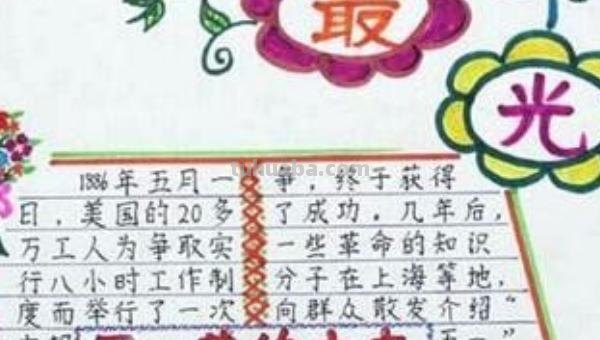 最
光
1886年五月一
日，美国的20多
万工人为争取实
行八小时工作制
度而举行了一次
争，终于获得
了成功。几年后，
一些革命的知识
分子在上海等地，
向群众散发介绍“
五一”